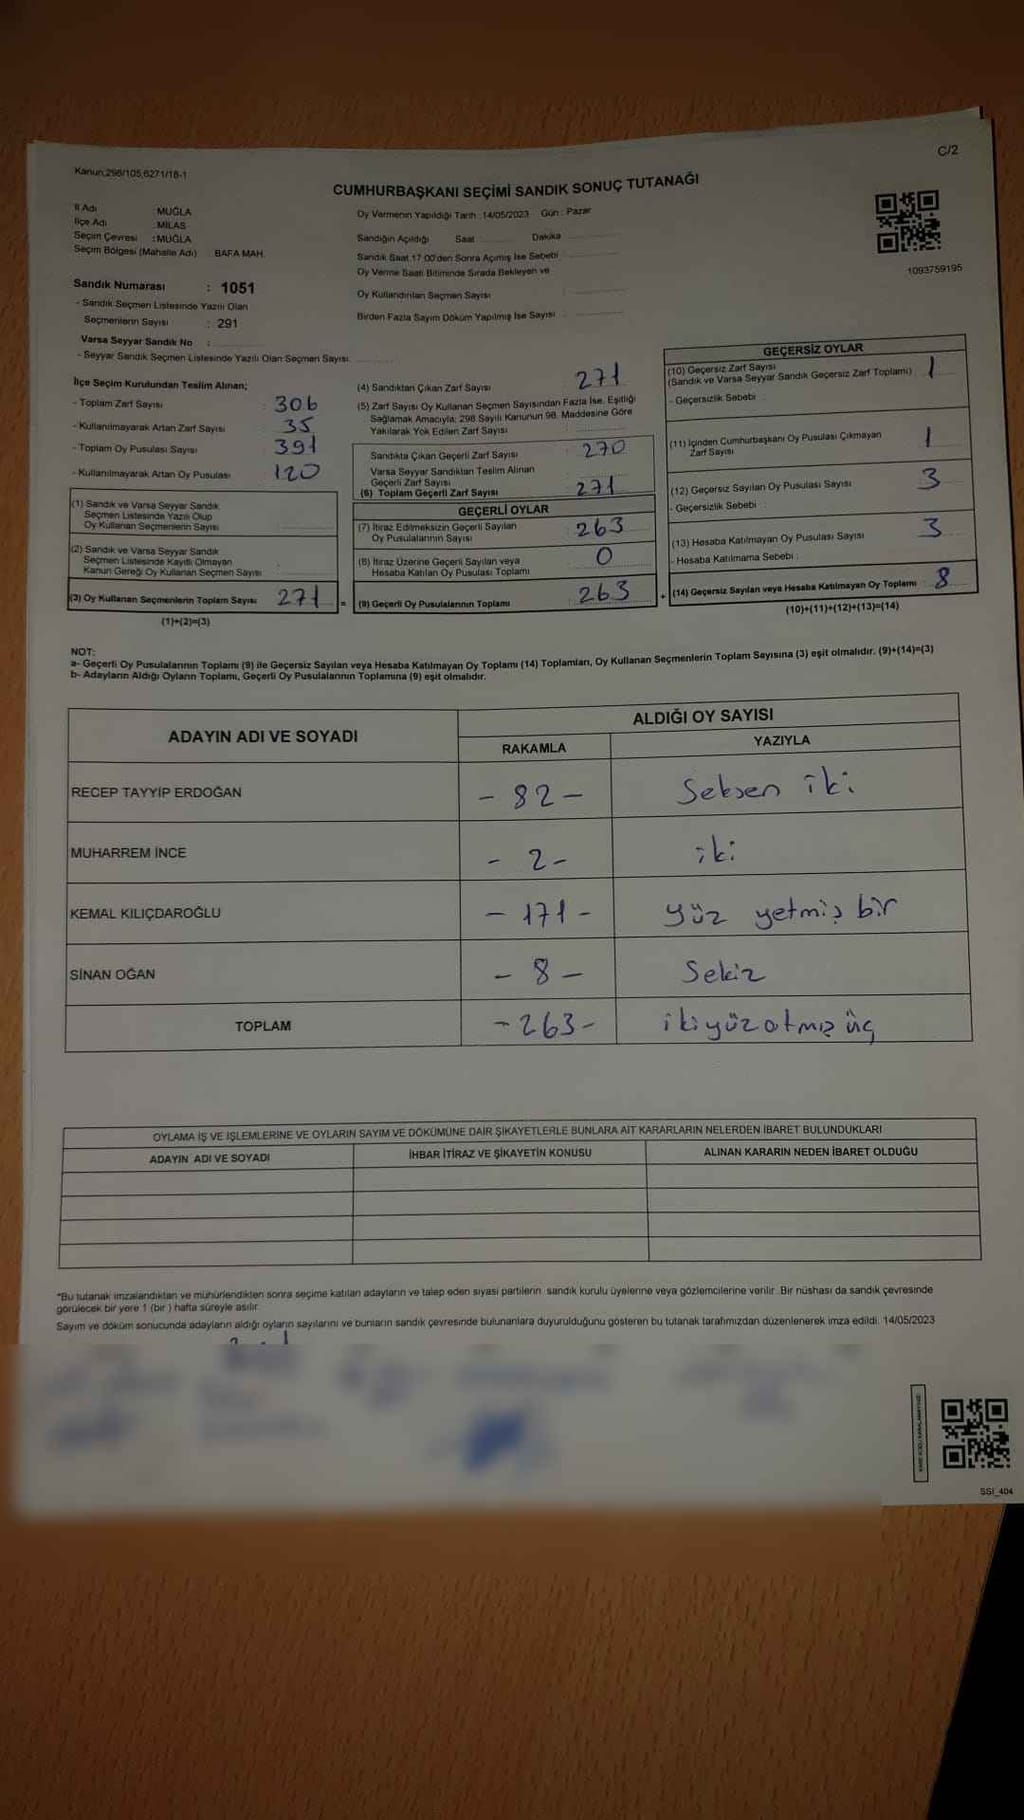 C/2
Kanun,298/105,6271/18-1
CUMHURBAŞKANI SEÇİMİ SANDIK SONUÇ TUTANAĞI
İl Adı MUĞLA
İlçe Adı MİLAS
Seçim Çevresi :MUĞLA
Seçim Bölgesi (Mahalle Adı) BAFA MAH.
Sandık Numarası : 1051
- Sandık Seçmen Listesinde Yazılı Olan
Seçmenlerin Sayısı : 291
Varsa Seyyar Sandık No :
- Seyyar Sandık Seçmen Listesinde Yazılı Olan Seçmen Sayısı
Oy Vermenin Yapıldığı Tarih :14/05/2023 Gün : Pazar
Sandığın Açıldığı Saat Dakika
Sandık Saat 17.00'den Sonra Açılmış İse Sebebi
Oy Verme Saati Bitiminde Sırada Bekleyen ve
Oy Kullandırılan Seçmen Sayısı :
Birden Fazla Sayım Döküm Yapılmış İse Sayısı :
1093759195
İlçe Seçim Kurulundan Teslim Alınan;
- Toplam Zarf Sayısı 306
- Kullanılmayarak Artan Zarf Sayısı 35
- Toplam Oy Pusulası Sayısı 391
- Kullanılmayarak Artan Oy Pusulası 120
(1) Sandık ve Varsa Seyyar Sandık
Seçmen Listesinde Yazılı Olup
Oy Kullanan Seçmenlerin Sayısı
(2) Sandık ve Varsa Seyyar Sandık
Seçmen Listesinde Kayıtlı Olmayan
Kanun Gereği Oy Kullanan Seçmen Sayısı
(3) Oy Kullanan Seçmenlerin Toplam Sayısı 271 =
(1)+(2)=(3)
(4) Sandıktan Çıkan Zarf Sayısı 271
(5) Zarf Sayısı Oy Kullanan Seçmen Sayısından Fazla İse, Eşitliği
Sağlamak Amacıyla; 298 Sayılı Kanunun 98. Maddesine Göre
Yakılarak Yok Edilen Zarf Sayısı
Sandıkta Çıkan Geçerli Zarf Sayısı : 270
Varsa Seyyar Sandıktan Teslim Alınan
Geçerli Zarf Sayısı
(6) Toplam Geçerli Zarf Sayısı 271
GEÇERLİ OYLAR
(7) İtiraz Edilmeksizin Geçerli Sayılan
Oy Pusulalarının Sayısı : 263
(8) İtiraz Üzerine Geçerli Sayılan veya
Hesaba Katılan Oy Pusulası Toplamı 0
(9) Geçerli Oy Pusulalarının Toplamı 263 +
GEÇERSİZ OYLAR
(10) Geçersiz Zarf Sayısı
(Sandık ve Varsa Seyyar Sandık Geçersiz Zarf Toplamı) 1
- Geçersizlik Sebebi :
(11) İçinden Cumhurbaşkanı Oy Pusulası Çıkmayan
Zarf Sayısı 1
(12) Geçersiz Sayılan Oy Pusulası Sayısı 3
- Geçersizlik Sebebi :
(13) Hesaba Katılmayan Oy Pusulası Sayısı 3
- Hesaba Katılmama Sebebi :
(14) Geçersiz Sayılan veya Hesaba Katılmayan Oy Toplamı 8
(10)+(11)+(12)+(13)=(14)
NOT:
a- Geçerli Oy Pusulalarının Toplamı (9) ile Geçersiz Sayılan veya Hesaba Katılmayan Oy Toplamı (14) Toplamları, Oy Kullanan Seçmenlerin Toplam Sayısına (3) eşit olmalıdır. (9)+(14)=(3)
b- Adayların Aldığı Oyların Toplamı, Geçerli Oy Pusulalarının Toplamına (9) eşit olmalıdır.
ADAYIN ADI VE SOYADI ALDIĞI OY SAYISI
RAKAMLA YAZIYLA
RECEP TAYYİP ERDOĞAN - 82 - Seksen iki
MUHARREM İNCE - 2 - iki
KEMAL KILIÇDAROĞLU - 171 - yüz yetmiş bir
SİNAN OĞAN - 8 - Sekiz
TOPLAM - 263 - iki yüz atmış üç
OYLAMA İŞ VE İŞLEMLERİNE VE OYLARIN SAYIM VE DÖKÜMÜNE DAİR ŞİKAYETLERLE BUNLARA AİT KARARLARIN NELERDEN İBARET BULUNDUKLARI
ADAYIN ADI VE SOYADI İHBAR İTİRAZ VE ŞİKAYETİN KONUSU ALINAN KARARIN NEDEN İBARET OLDUĞU
*Bu tutanak imzalandıktan ve mühürlendikten sonra seçime katılan adayların ve talep eden siyasi partilerin sandık kurulu üyelerine veya gözlemcilerine verilir. Bir nüshası da sandık çevresinde
görülecek bir yere 1 (bir) hafta süreyle asılır.
Sayım ve döküm sonucunda adayların aldığı oyların sayılarını ve bunların sandık çevresinde bulunanlara duyurulduğunu gösteren bu tutanak tarafımızdan düzenlenerek imza edildi. 14/05/2023
SSI_404